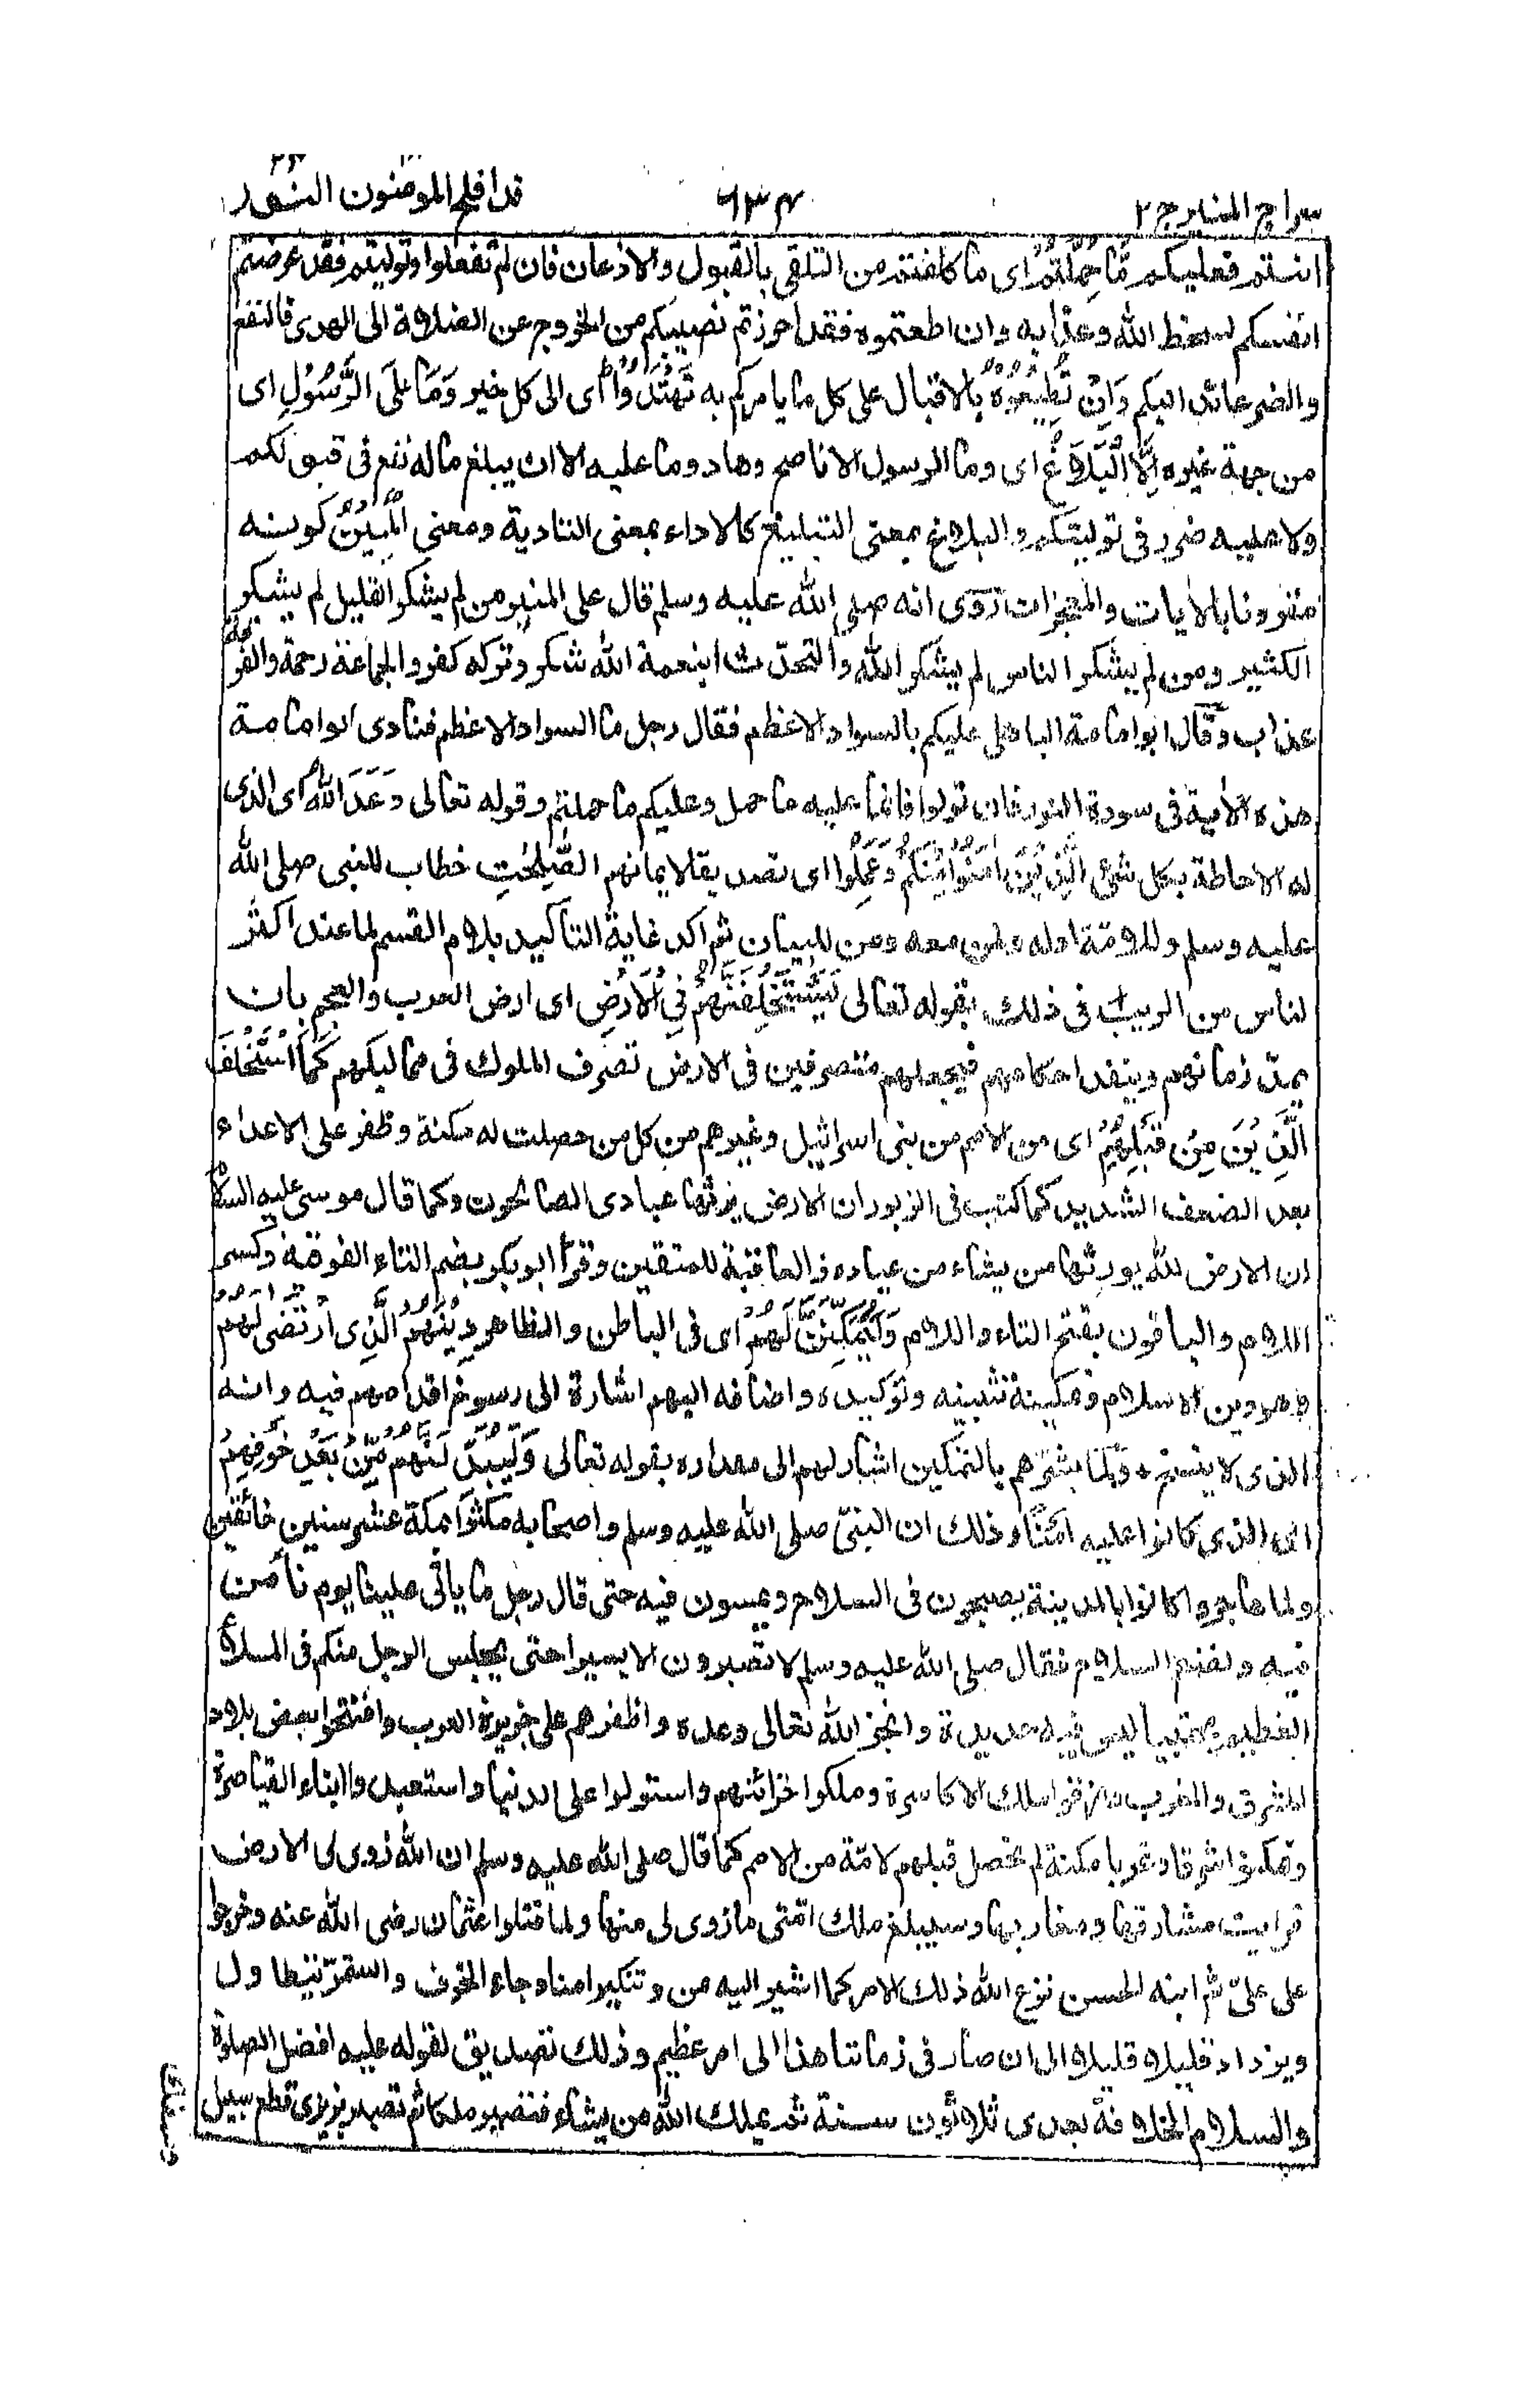 سراج المنير ج ٢ ٦٣٤ قد افلح المومنون النور ٢٤
انتم فعليكم مَّا حُمِّلْتُمْ اى ما كلفتم من التلقى بالقبول والاذعان فان لم تفعلوا وتوليتم فقد عرضتم
انفسكم لسخط الله وعذابه وان اطعتموه فقد احرزتم نصيبكم من الخروج عن الضلالة الى الهدى فالنفع
والضر عائد اليكم وَاِنْ تُطِيْعُوْهُ بالاقبال على كل ما يامركم به تَهْتَدُوْا اى الى كل خير وَمَا عَلَى الرَّسُوْلِ اى
من جهة غيره اِلَّا الْبَلَاغُ اى وما الرسول الا ناصح وهاد وما عليه الا ان يبلغ ما له نفع فى قبولكم
ولا عليه ضرر فى توليتكم والبلاغ بمعنى التبليغ كالاداء بمعنى التادية ومعنى الْمُبِيْنُ كونه
مقرونا بالايات والمعجزات روى انه صلى الله عليه وسلم قال على المنبر من لم يشكر القليل لم يشكر
الكثير ومن لم يشكر الناس لم يشكر الله والتحدّث بنعمة الله شكر وتركه كفر والجماعة رحمة والفرقة
عذاب وقال ابوامامة الباهلى عليكم بالسواد الاعظم فقال رجل ما السواد الاعظم فنادى ابوامامة
هذه الأية فى سورة النور فان تولوا فانما عليه ما حمل وعليكم ما حملتم وقوله تعالى وَعَدَ اللهُ اى الذى
له الاحاطة بكل شئ الَّذِيْنَ اٰمَنُوْا مِنْكُمْ وَعَمِلُوا اى تصديقا لايمانهم الصّٰلِحٰتِ خطاب للنبى صلى الله
عليه وسلم وللامّة اوله ولمن معه ومن للبيان ثم اكد غاية التاكيد بلام القسم لما عند اكثر
لناس من الريب فى ذلك بقوله تعالى لَيَسْتَخْلِفَنَّهُمْ فِى الْاَرْضِ اى ارض العرب والعجم بان
يمدّ زمانهم وينفذ احكامهم فيجعلهم متصرفين فى الارض تصرف الملوك فى مماليكهم كَمَا اسْتَخْلَفَ
الَّذِيْنَ مِنْ قَبْلِهِمْ اى من الامم من بنى اسرائيل وغيرهم من كل من حصلت له مكنة وظفر على الاعداء
بعد الضعف الشديد كما كتب فى الزبور ان الارض يرثها عبادى الصالحون وكما قال موسى عليه السلام
ان الارض لله يورثها من يشاء من عباده والعاقبة للمتقين وقرأ ابوبكر بضم التاء الفوقية وكسر
اللام والباقون بفتح التاء واللام وَلَيُمَكِّنَنَّ لَهُمْ اى فى الباطن والظاهر دِيْنَهُمُ الَّذِى ارْتَضٰى لَهُمْ
وهو دين الاسلام وتمكينه تثبيته وتوكيده واضافه اليهم اشارة الى رسوخ اقدامهم فيه وانه
الذى لا ينسخ ولما بشّرهم بالتمكين اشار لهم الى مقداره بقوله تعالى وَلَيُبَدِّلَنَّهُمْ مِّنْ بَعْدِ خَوْفِهِمْ
اى الذى كانوا عليه اَمْنًا وذلك ان النبىّ صلى الله عليه وسلم واصحابه مكثوا بمكة عشر سنين خائفين
ولما هاجروا كانوا بالمدينة يصبحون فى السلاح ويمسون فيه حتى قال رجل ما يأتى علينا يوم نأمن
فيه ونضع السلاح فقال صلى الله عليه وسلم لا تصبرون الا يسيرا حتى يجلس الرجل منكم فى الملاء
العظيم محتبيا ليس فيه حديدة وانجز الله تعالى وعده واظفرهم على جزيرة العرب وافتتحوا بعض بلاد
المشرق والمغرب ومزقوا ملك الاكاسرة وملكوا خزائنهم واستولوا على الدنيا واستعبدوا ابناء القياصرة
وتمكنوا شرقا وغربا مكنة لم تحصل قبلهم لامّة من الامم كما قال صلى الله عليه وسلم ان الله زوى لى الارض
فرايت مشارقها ومغاربها وسيبلغ ملك امّتى ما زوى لى منها ولما قتلوا عثمان رضى الله عنه وخرجوا
على علىّ ثم ابنه الحسن نزع الله ذلك الامر كما اشير اليه من وتنكير امنا وجاء الخوف واستمرّ يتطاول
ويزداد قليلا قليلا الى ان صار فى زماننا هذا الى امر عظيم وذلك تصديق لقوله عليه افضل الصلوة
والسلام الخلافة بعدى ثلاثون سنة ثم يملك الله من يشاء فتصير ملكا ثم تصير بزيزى قطع سبيل